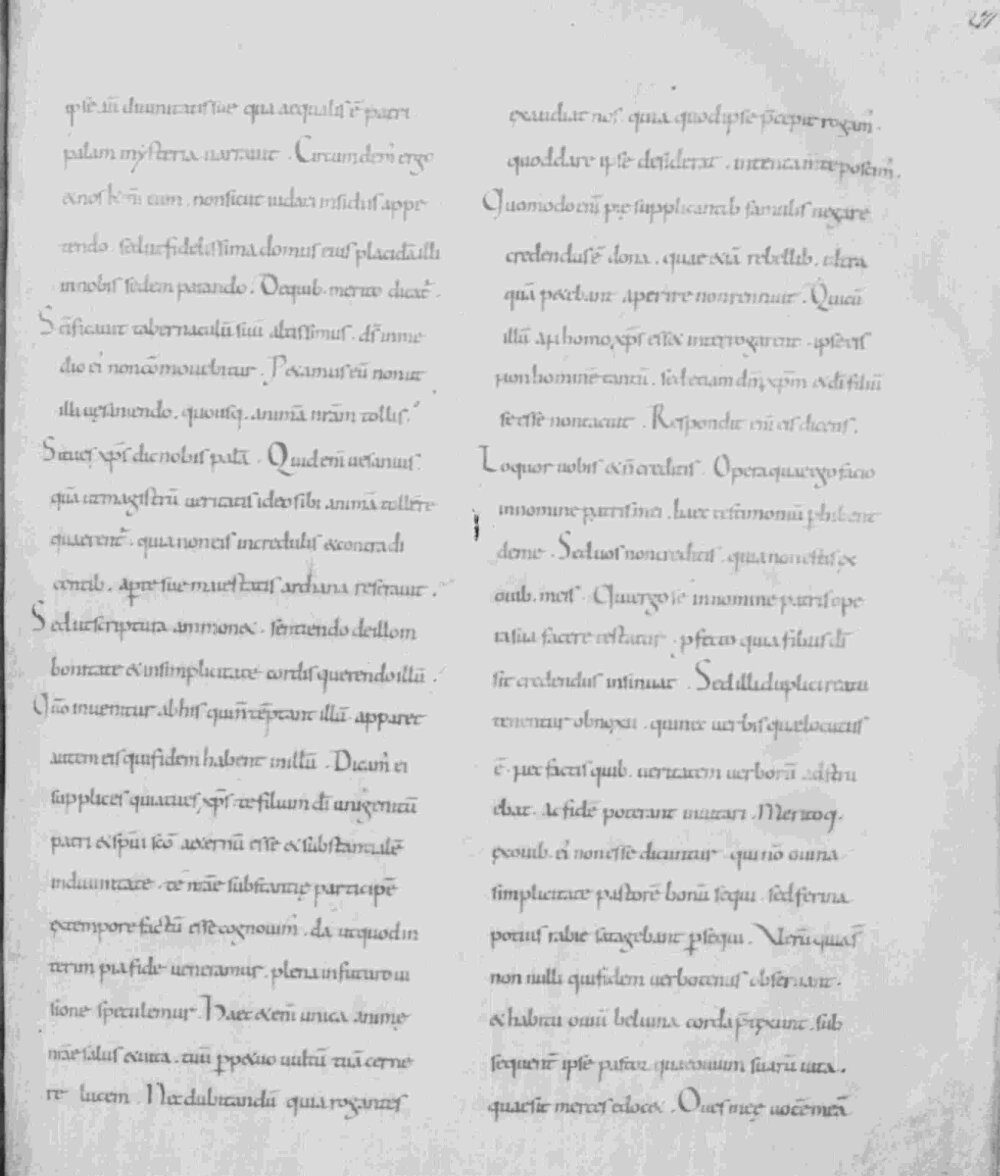 q̅ se̅ in̅ diuinitatis sue qua aequalis e̅ patri
palam mysteria narrauit . Circumdem' ergo
& nos h̅ m̅ eum . non sicut iudaei insidias appe
tendo sed ut fidelissima domus eius placida̅ illi
in nobis sedem parando . De quib. merito dicat̅ .
Sc̅ificauit tabernaculu̅ suu̅ altissimus . d̅s in me
dio ei' non co̅mouebitur . P&amus eu̅ non ut
illi uesaniendo . quousq. anima̅ nr̅am tollis .
Si tu es xp̅s dic nobis pala̅ . Quid eni̅ uesanius .
qua̅ ut magistru̅ ueritatis ideo sibi anima̅ tollere
quaerent̅ . quia non eis incredulis & contradi
centib . aperte sue maiestatis archana reserauit .
Sed ut scriptura ammon& . sentiendo de illo in
bonitate & in simplicitate cordis querendo illu̅ .
Qn̅o inuenitur ab his qui n̅ te̅ptant illu̅ . apparet
autem eis qui fidem habent in illu̅ . Dicam' ei
supplices quia tu es xp̅s . te filium d̅i unigenitu̅
patri & sp̅ui sc̅o a&ernu̅ esse & substantiale̅
in diuinitate . te n̅r̅ae substantię participe̅
ex tempore factu̅ esse cognouim' . da ut quod in
terim pia fide ueneramur . plena in futuro ui
sione speculemur . Haec & eni̅ unica animę
n̅r̅ae salus & uita . tuu̅ perp&uo uultu̅ tua̅ cerne
re lucem . Nec dubitandu̅ quia rogantes
exaudiat nos . quia quod ipse p̅cepit rogam' .
quod dare ipse desiderat . intenta m̅te poscim' .
Quomodo eni̅ pie supplicantib famulis negare
credendus e̅ dona . quae &ia̅ rebellib . ultra
qua̅ p&ebant aperire non rennuit . Qui cu̅
illu̅ an homo xp̅s ess& interrogarent . ipse eis
non homine̅ tantu̅ . sed etiam dn̅m xp̅m & d̅i filiu̅
se esse non tacuit . Respondit eni̅ eis dicens .
Loquor uobis & n̅ creditis . Opera quae ego facio
in nomine patris mei . haec testimoniu̅ phibent
de me . Sed uos non creditis . quia non estis ex
ouib . meis . Qui ergo se in nomine patris ope
ra sua facere testatur . pfecto quia filius d̅i
sit credendus insinuat . Sed illi duplici reatu
tenentur obnoxii . qui nec uerbis quae locutus
e̅ . nec factis quib . ueritatem uerboru̅ adstru
ebat . ac fide̅ poterant imitari . Meritoq.
ex ouib . ei' non esse dicuntur . qui no̅ ouina
simplicitate pastore̅ bonu̅ sequi . sed ferina
potius rabie satagebant p̱sequi . Veru̅ quas̅
non nulli qui fidem uerbo tenus obseruant .
& habitu ouiu̅ beluina corda p̅texunt . sub
sequent̅ ipse pastor quae ouium suaru̅ uita .
quae sit merces edoc& . Oues meę uoce̅ mea̅